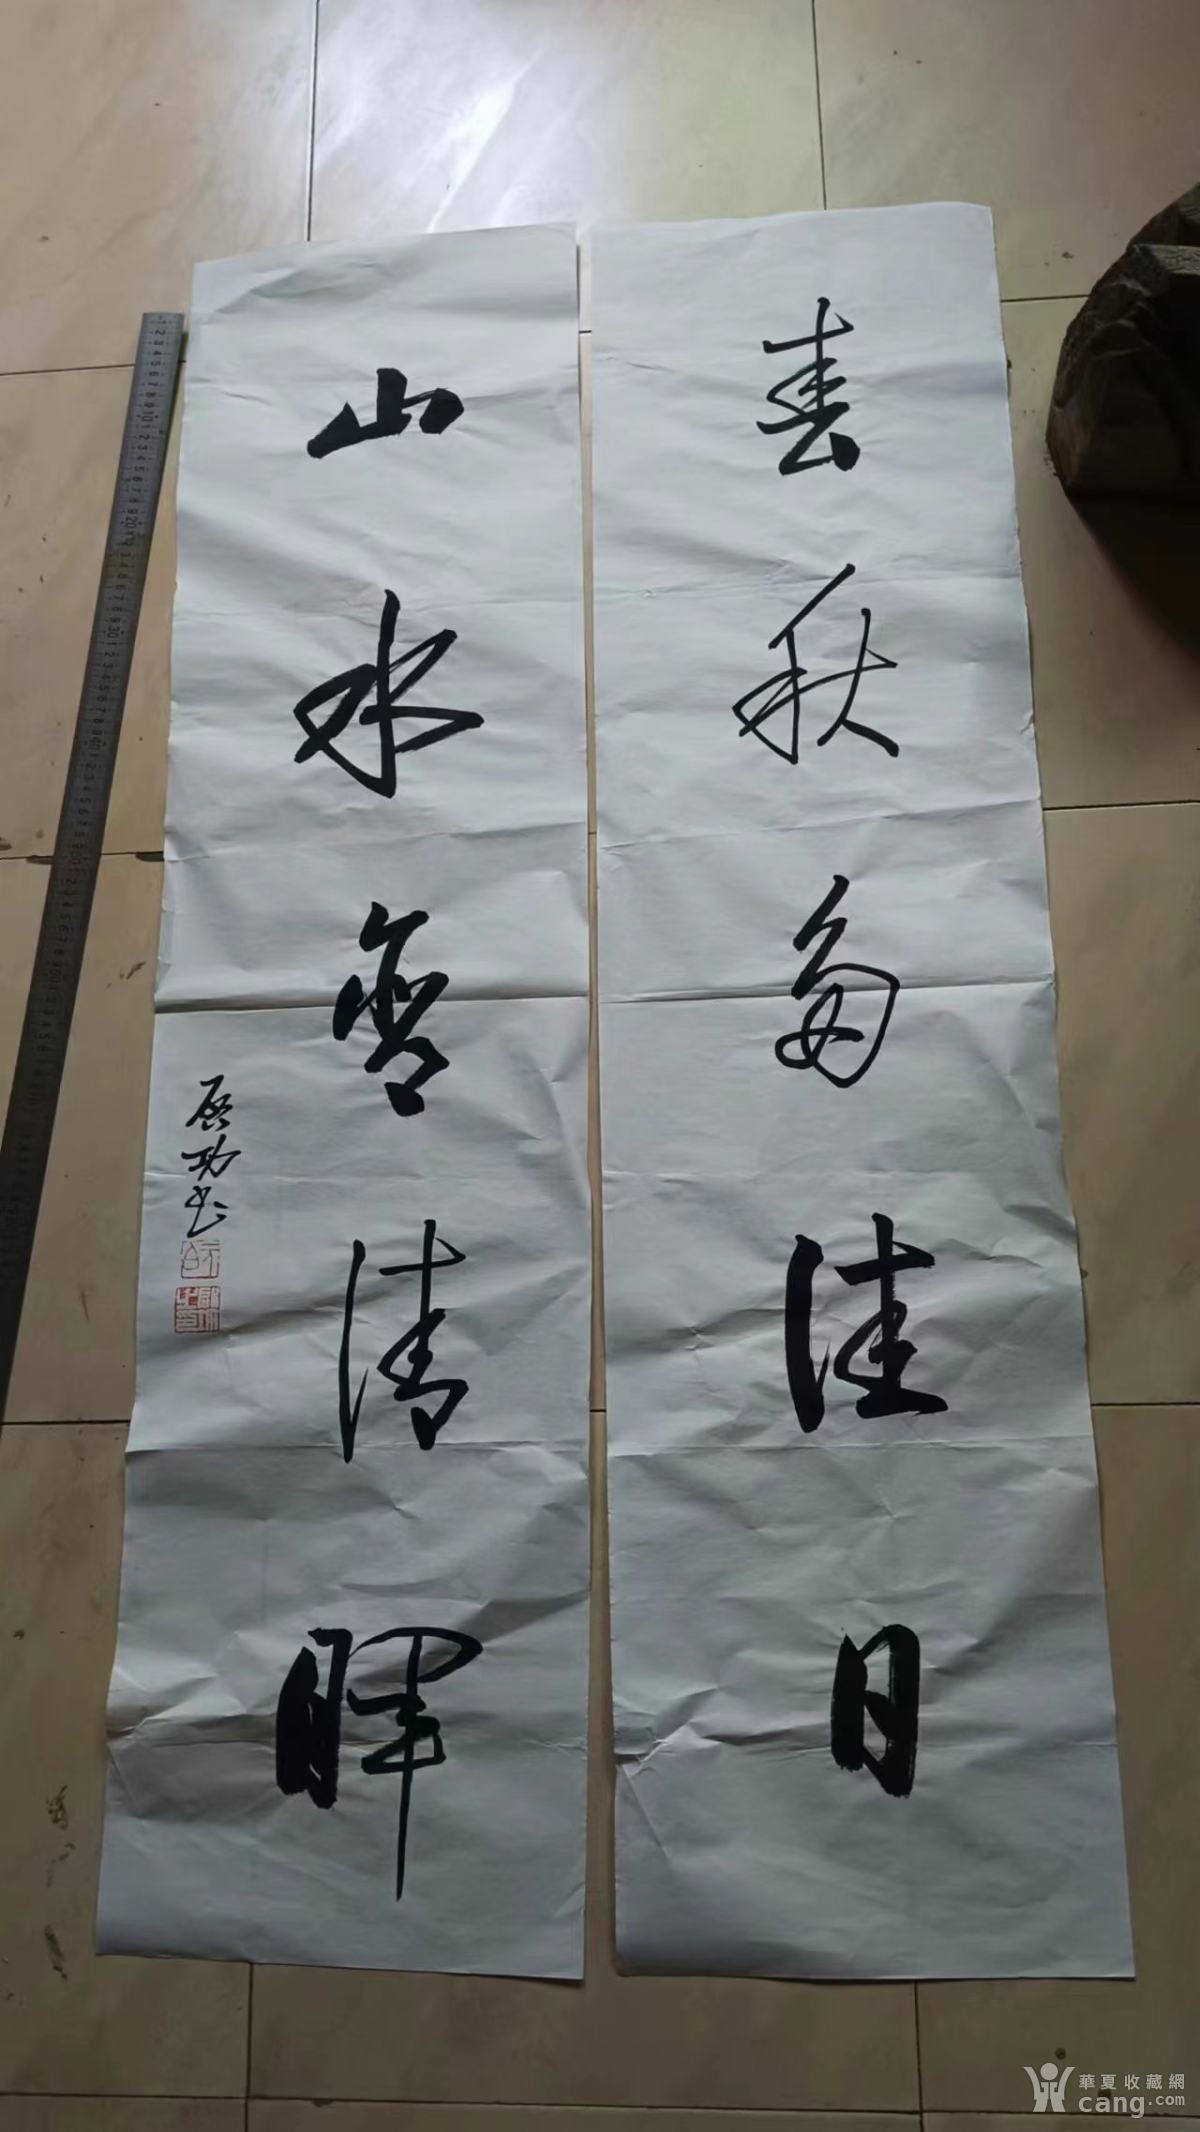 春秋多佳日
山水含清暉
启功书
元白
華夏收藏網
cang.com